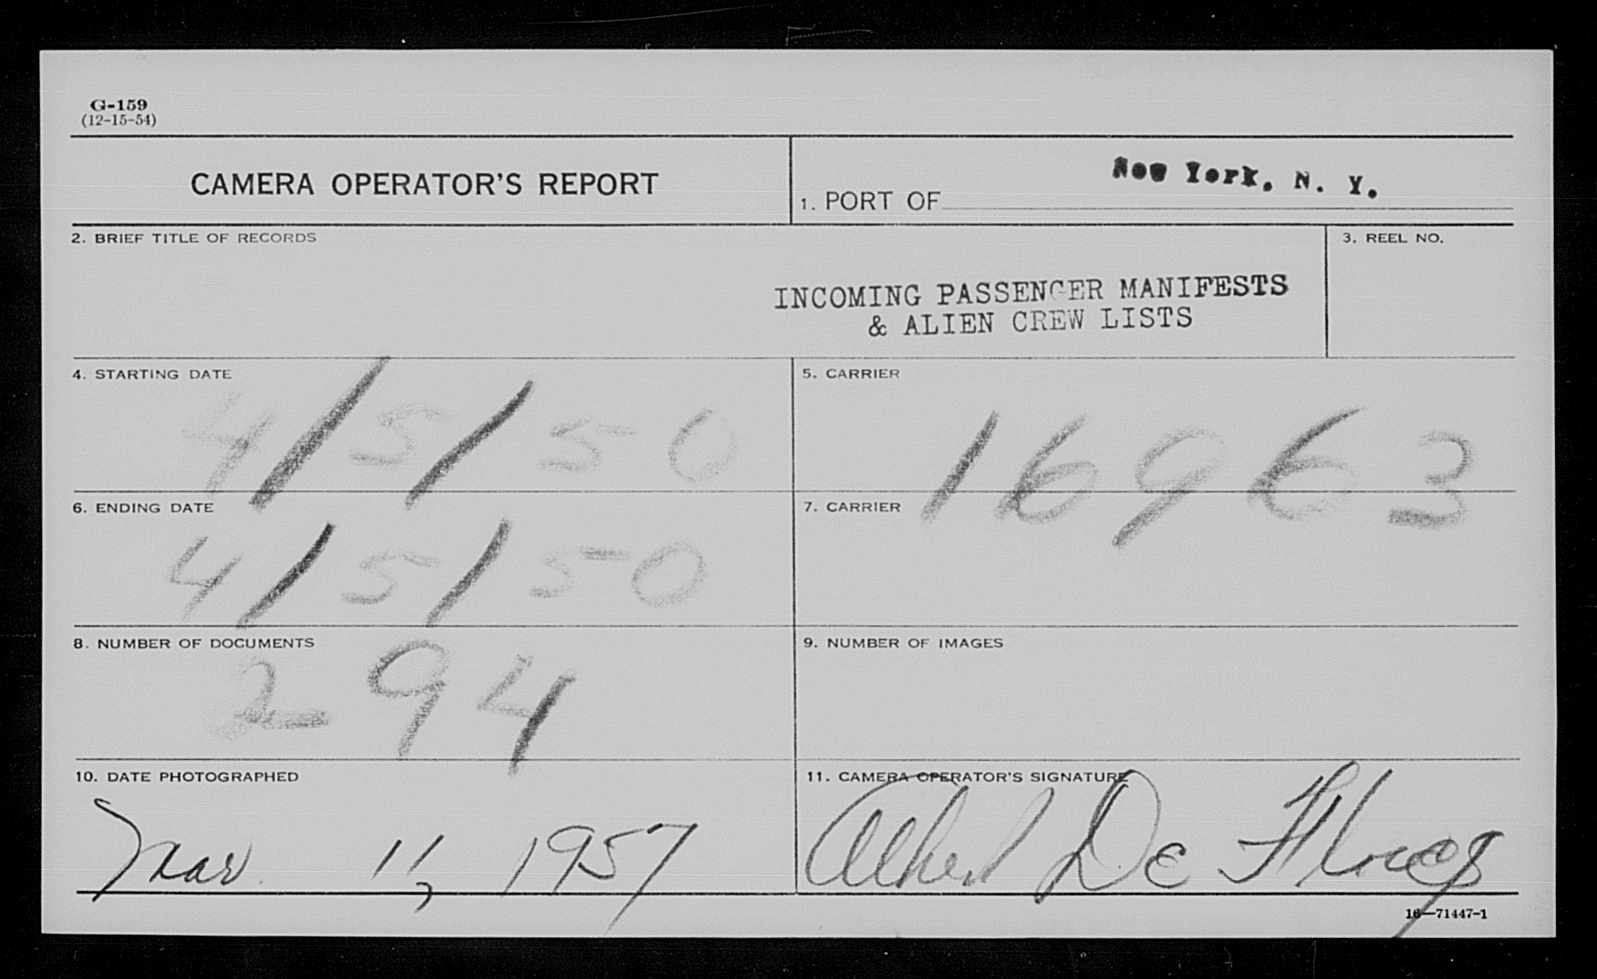 G-159
(12-15-54)
CAMERA OPERATOR'S REPORT
1. PORT OF New York, N. Y.
2. BRIEF TITLE OF RECORDS
INCOMING PASSENGER MANIFESTS
& ALIEN CREW LISTS
3. REEL NO.
4. STARTING DATE
4/5/50
5. CARRIER
16963
6. ENDING DATE
4/5/50
7. CARRIER
8. NUMBER OF DOCUMENTS
294
9. NUMBER OF IMAGES
10. DATE PHOTOGRAPHED
Mar 11, 1957
11. CAMERA OPERATOR'S SIGNATURE
Albert De
16—71447-1